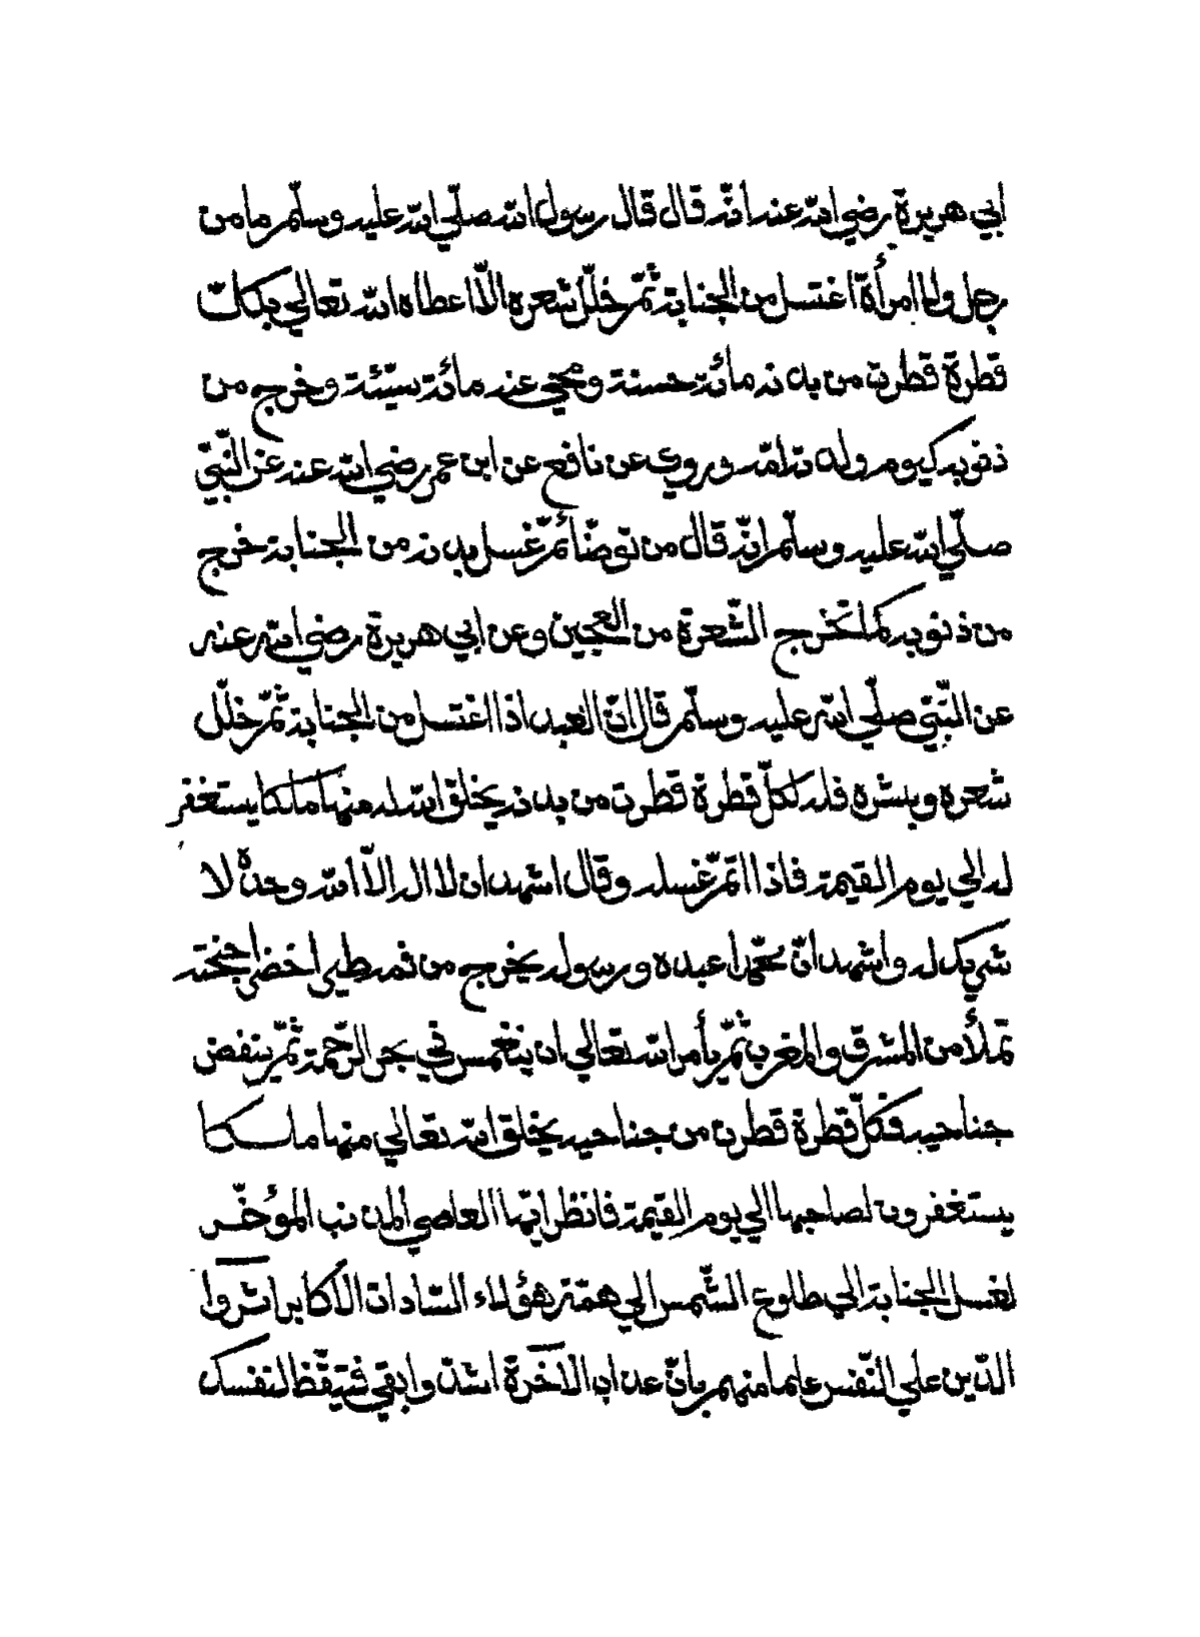 ابي هريرة رضي الله عنه انّه قال قال رسول الله صلّي الله عليه وسلّم ما من
رجل ولا امرأة اغتسل من الجنابة ثمّ خلّل شعره الاّ اعطاه الله تعالي بكلّ
قطرة قطرت من بدنه مائة حسنة ومحي عنه مائة سيّئة وخرج من
ذنوبه كيوم ولدته امّه وروي عن نافع عن ابن عمر رضي الله عنه عن النّبيّ
صلّي الله عليه وسلّم انّه قال من توضّأ ثمّ غسل بدنه من الجنابة خرج
من ذنوبه كما تخرج الشّعرة من العجين وعن ابي هريرة رضي الله عنه
عن النّبيّ صلّي الله عليه وسلّم قال انّ العبد اذا اغتسل من الجنابة ثمّ خلّل
شعره وبشره فله لكلّ قطرة قطرت من بدنه يخلق الله له منها ملكا يستغفر
له الي يوم القيمة فاذا اتمّ غسله وقال اشهد ان لا اله الاّ الله وحده لا
شريك له واشهد انّ محمّدا عبده ورسوله يخرج من ثمه طير اخضر اجنحته
تملأ من المشرق والمغرب ثمّ يأمر الله تعالي ان ينغمس في بحر الرّحمة ثمّ ينفض
جناحيه فكلّ قطرة قطرت من جناحيه يخلق الله تعالي منها ملكا
يستغفرون لصاحبها الي يوم القيمة فانظر ايّها العاصي المذنب المؤخّر
لغسل الجنابة الي طلوع الشّمس الي همّة هؤلاء السّادات الاكابر اثروا
الدّين علي النّفس علما منهم بانّ عذاب الآخرة اشدّ وابقي فتيقّظ لنفسك